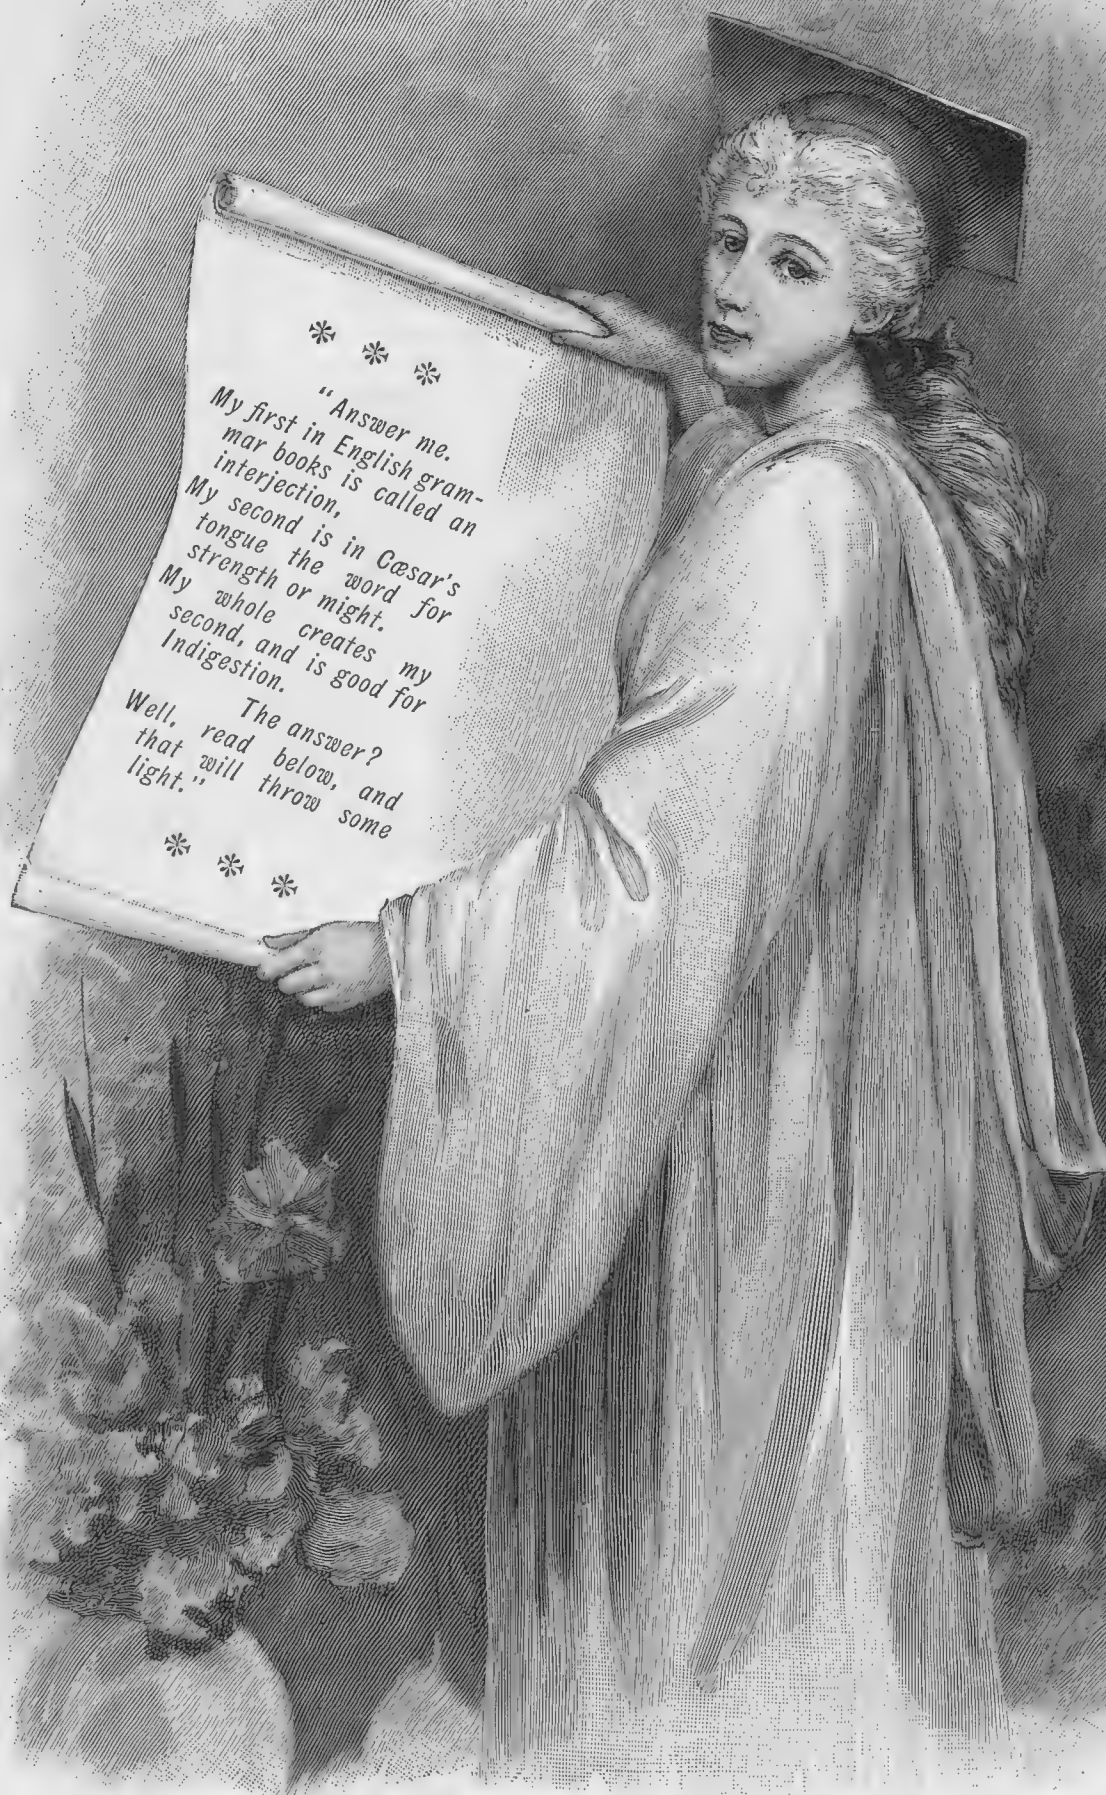 * * *
“Answer me.
My first in English gram-
mar books is called an
interjection,
My second is in Cæsar's
tongue the word for
strength or might.
My whole creates my
second, and is good for
Indigestion.
The answer?
Well, read below, and
that will throw some
light.”
* * *